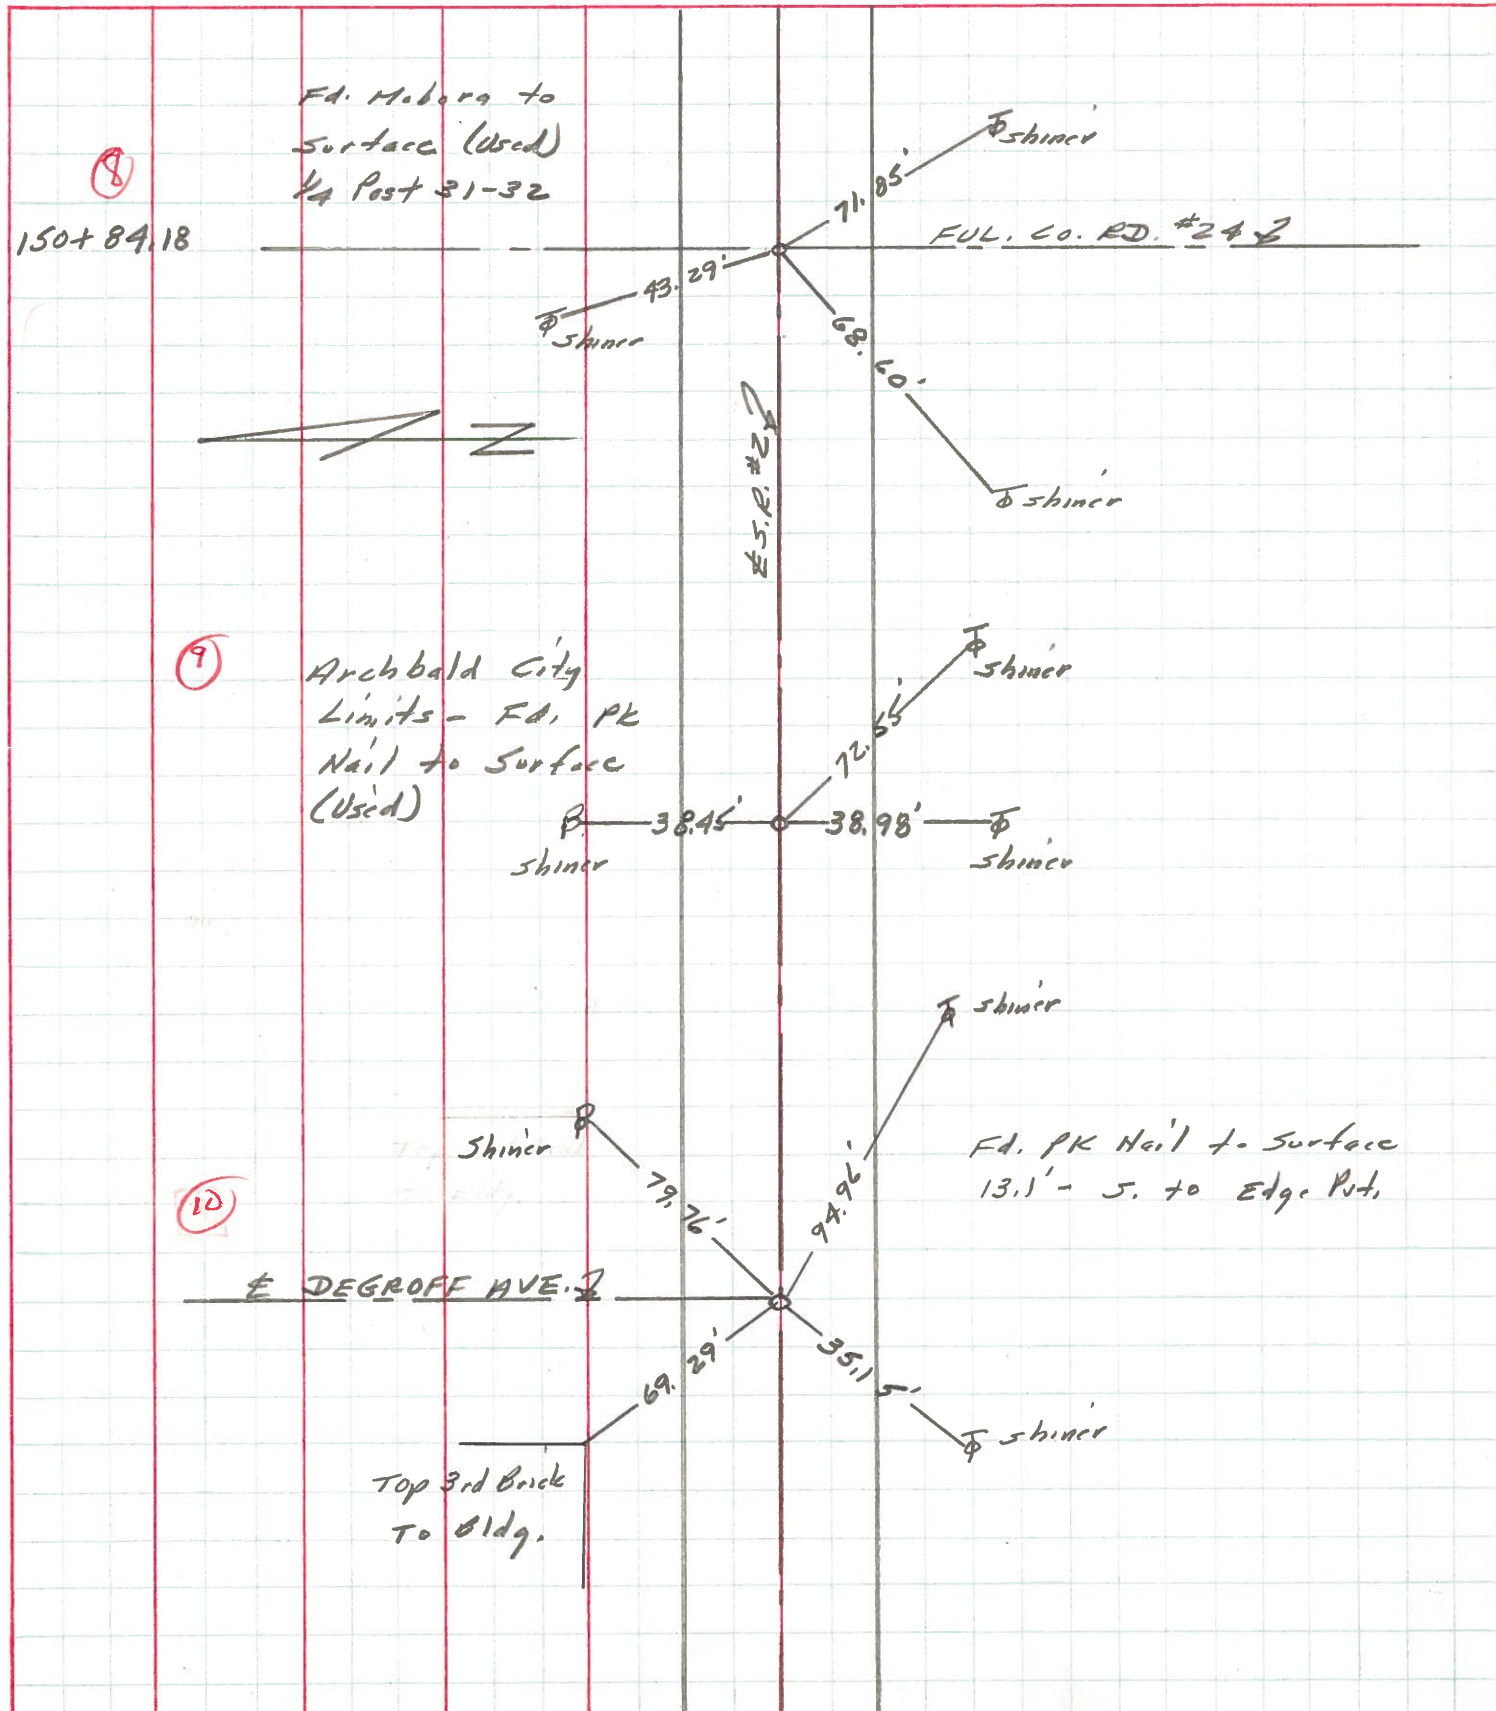 Fd. Mobora to
Surface (Used)
1/4 Post 31-32
8
150+84.18
71.85'
shiner
FUL. CO. RD. #24 ℄
43.29'
shiner
68.60'
shiner
N
℄ S.R. #2 ℄
9
Archbald City
Limits - Fd. PK
Nail to Surface
(Used)
72.55'
shiner
38.45'
shiner
38.98'
shiner
shiner
94.96'
shiner
79.76'
Fd. PK Nail to Surface
13.1' - S. to Edge Pvt.
10
℄ DEGROFF AVE. ℄
69.29'
35.15'
shiner
Top 3rd Brick
To Bldg.